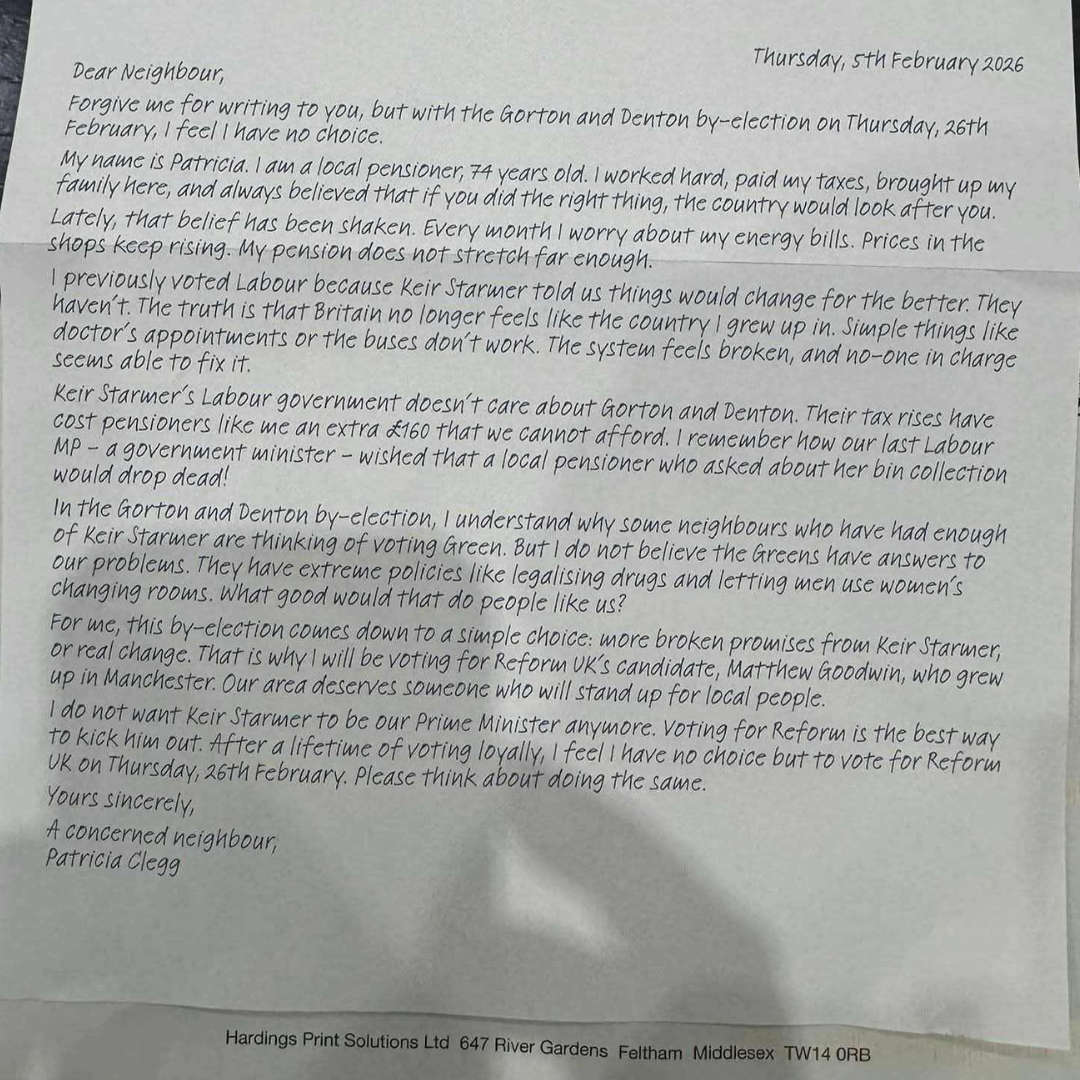 Thursday, 5th February 2026
Dear Neighbour,
Forgive me for writing to you, but with the Gorton and Denton by-election on Thursday, 26th
February, I feel I have no choice.
My name is Patricia. I am a local pensioner, 74 years old. I worked hard, paid my taxes, brought up my
family here, and always believed that if you did the right thing, the country would look after you.
Lately, that belief has been shaken. Every month I worry about my energy bills. Prices in the
shops keep rising. My pension does not stretch far enough.
I previously voted Labour because Keir Starmer told us things would change for the better. They
haven't. The truth is that Britain no longer feels like the country I grew up in. Simple things like
doctor's appointments or the buses don't work. The system feels broken, and no-one in charge
seems able to fix it.
Keir Starmer's Labour government doesn't care about Gorton and Denton. Their tax rises have
cost pensioners like me an extra £160 that we cannot afford. I remember how our last Labour
MP - a government minister - wished that a local pensioner who asked about her bin collection
would drop dead!
In the Gorton and Denton by-election, I understand why some neighbours who have had enough
of Keir Starmer are thinking of voting Green. But I do not believe the Greens have answers to
our problems. They have extreme policies like legalising drugs and letting men use women's
changing rooms. What good would that do people like us?
For me, this by-election comes down to a simple choice: more broken promises from Keir Starmer,
or real change. That is why I will be voting for Reform UK's candidate, Matthew Goodwin, who grew
up in Manchester. Our area deserves someone who will stand up for local people.
I do not want Keir Starmer to be our Prime Minister anymore. Voting for Reform is the best way
to kick him out. After a lifetime of voting loyally, I feel I have no choice but to vote for Reform
UK on Thursday, 26th February. Please think about doing the same.
Yours sincerely,
A concerned neighbour,
Patricia Clegg
Hardings Print Solutions Ltd 647 River Gardens Feltham Middlesex TW14 0RB